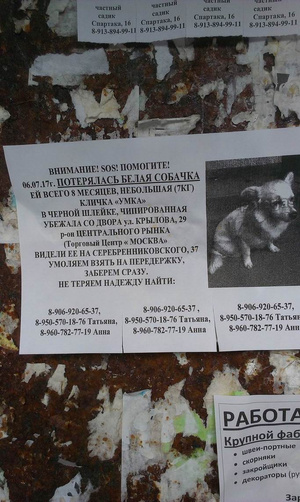 частный
садик
Спартака, 16
8-913-894-99-11
частный
садик
Спартака, 16
8-913-894-99-11
ВНИМАНИЕ! SOS! ПОМОГИТЕ!
06.07.17г. ПОТЕРЯЛАСЬ БЕЛАЯ СОБАЧКА
ЕЙ ВСЕГО 8 МЕСЯЦЕВ, НЕБОЛЬШАЯ (7КГ)
КЛИЧКА "УМКА"
В ЧЕРНОЙ ШЛЕЙКЕ, ЧИПИРОВАННАЯ
УБЕЖАЛА СО ДВОРА ул. КРЫЛОВА, 29
р-он ЦЕНТРАЛЬНОГО РЫНКА
(Торговый Центр «МОСКВА»)
ВИДЕЛИ ЕЕ НА СЕРЕБРЕННИКОВСКОГО, 37
УМОЛЯЕМ ВЗЯТЬ НА ПЕРЕДЕРЖКУ,
ЗАБЕРЕМ СРАЗУ.
НЕ ТЕРЯЕМ НАДЕЖДУ НАЙТИ:
8-906-920-65-37,
8-950-570-18-76 Татьяна,
8-960-782-77-19 Анна
8-906-920-65-37,
8-950-570-18-76 Татьяна,
8-960-782-77-19 Анна
8-906-920-65-37,
8-950-570-18-76 Татьяна,
8-960-782-77-19 Анна
РАБОТА
Крупной фаб
швеи-портные
скорняки
закройщики
декораторы (ру